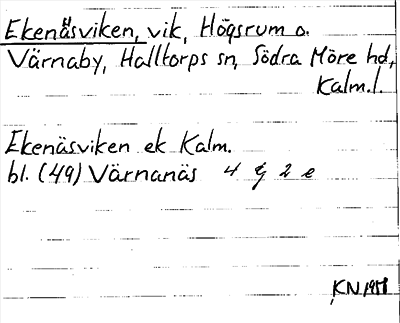 Ekenäsviken, vik, Högsrum o.
Värnaby, Halltorps sn, Södra Möre hd,
Kalm.l.
Ekenäsviken ek Kalm.
bl. (49) Värnanäs 4 G 2 e
KN 1958